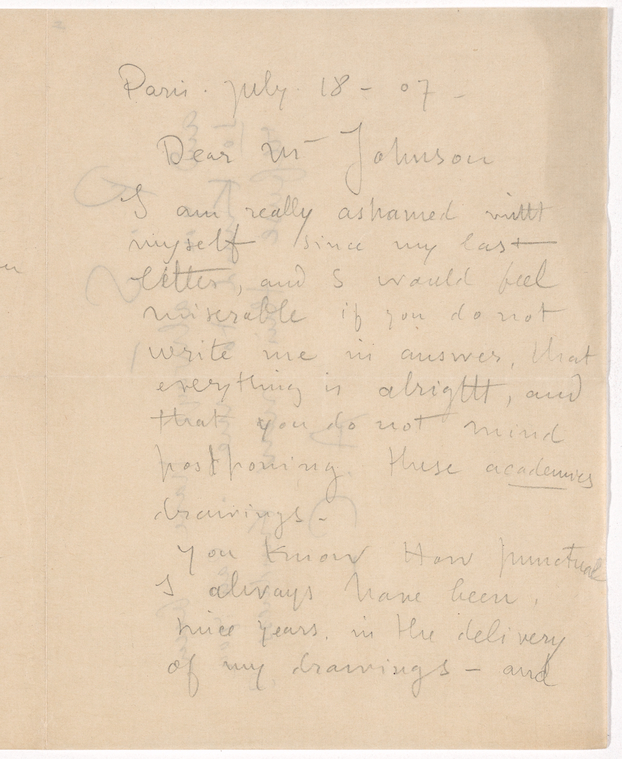 Paris. July. 18 - 07 -
Dear Mr Johnson
I am really ashamed witht
myself since my last
letter, and I would feel
miserable if you do not
write me in answer, that
everything is alrightt, and
that you do not mind
postponing these academies
drawings -
You know How punctual
I always have been,
since years. in the delivery
of my drawings - and